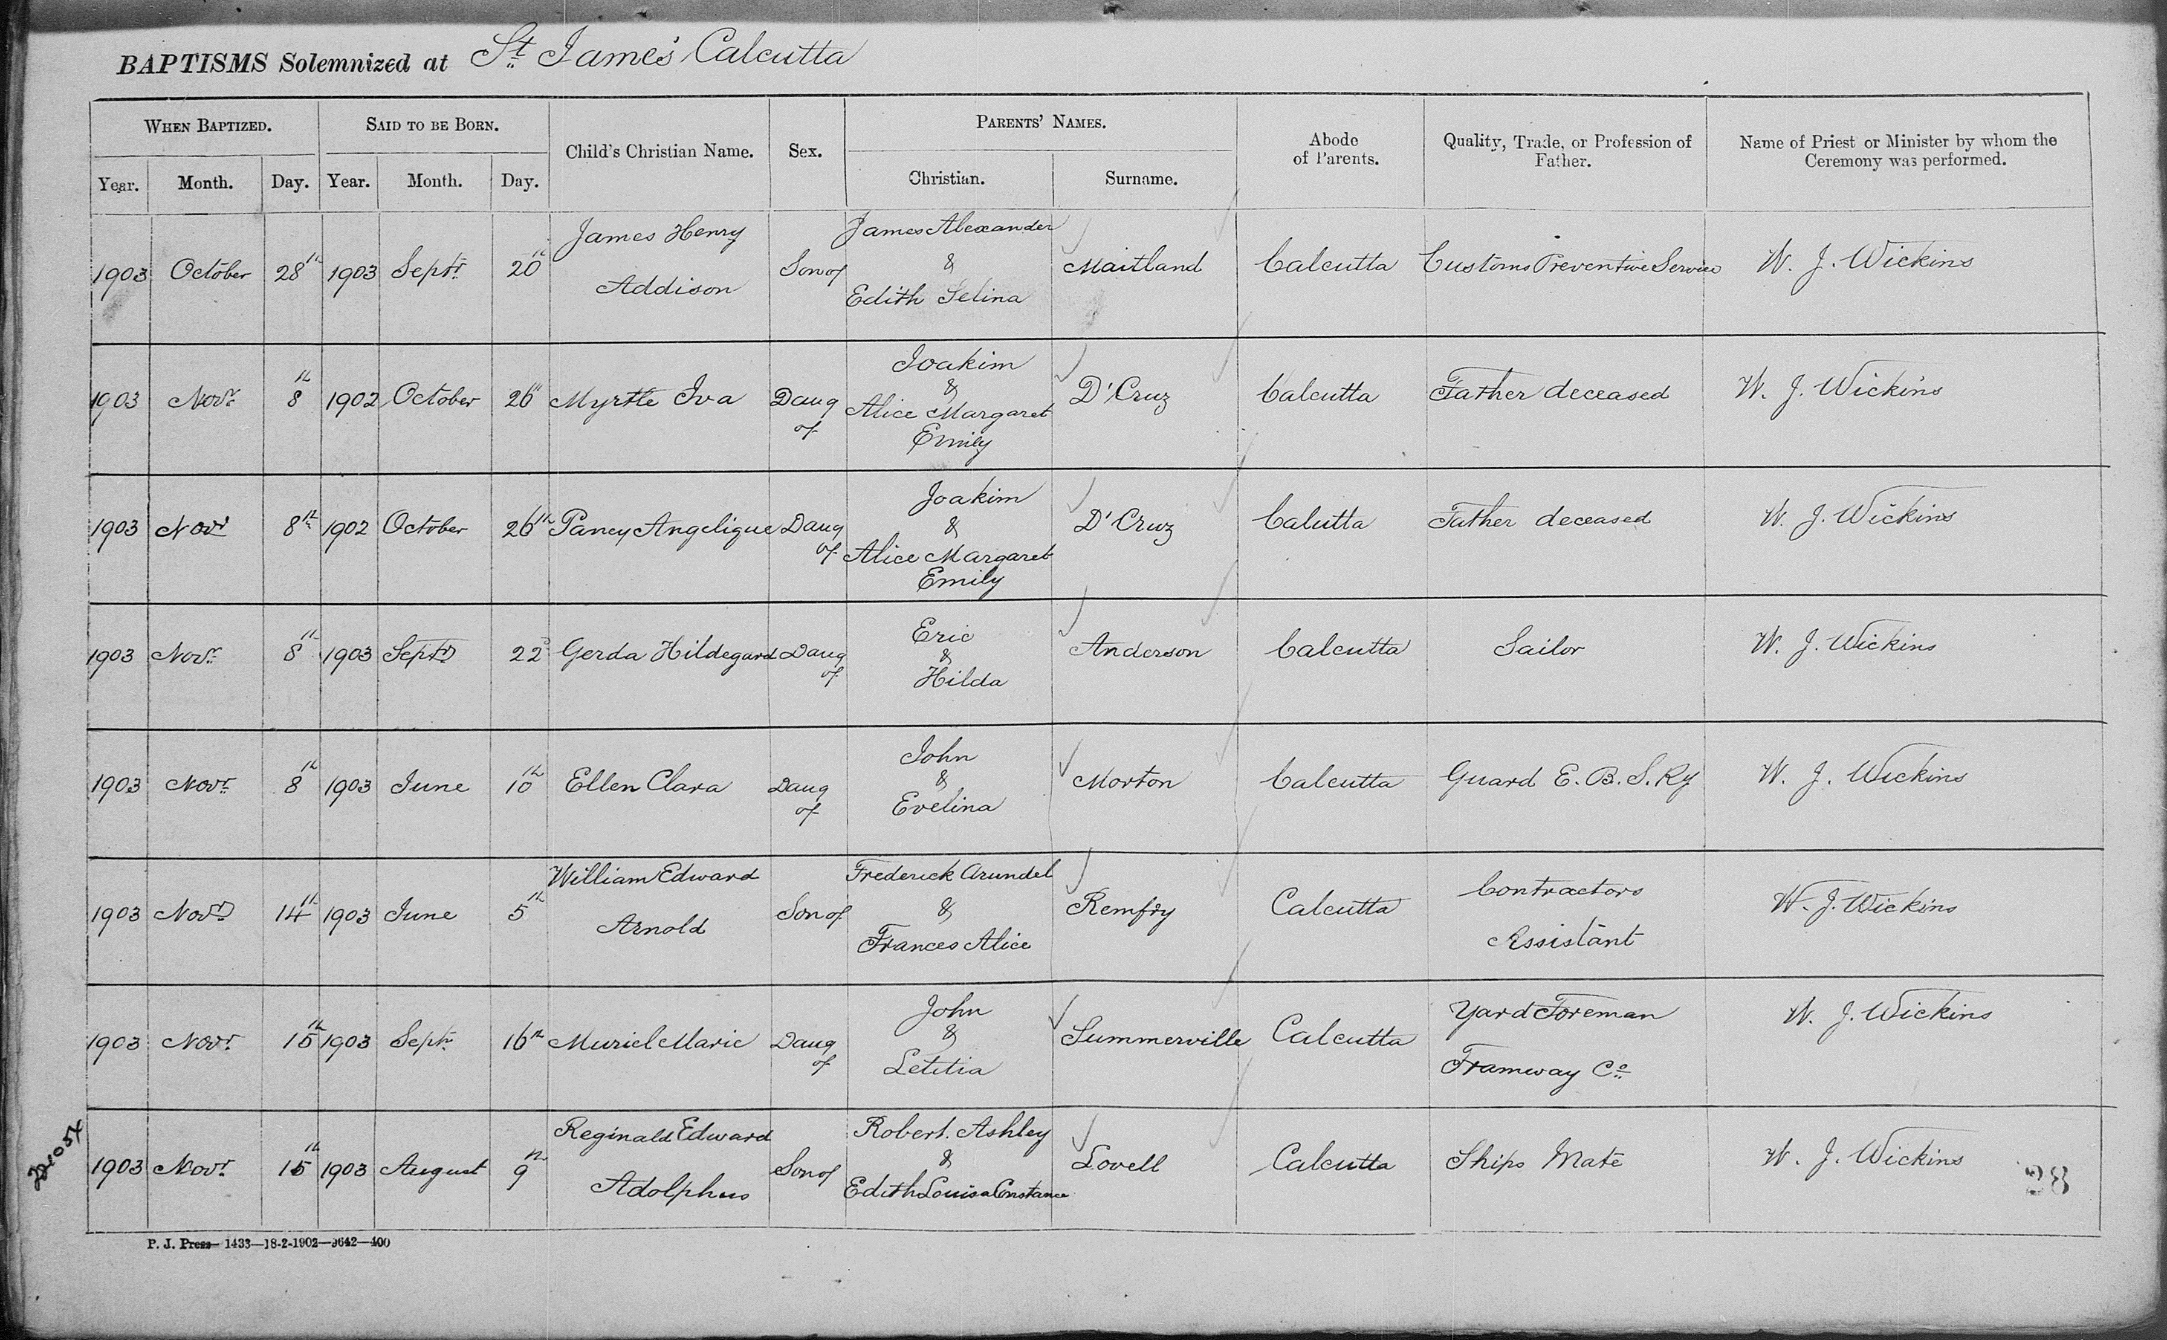 BAPTISMS Solemnized at St James Calcutta
WHEN BAPTIZED. SAID TO BE BORN. Child's Christian Name. Sex. PARENTS' NAMES. Abode of Parents. Quality, Trade, or Profession of Father. Name of Priest or Minister by whom the Ceremony was performed.
Year. Month. Day. Year. Month. Day. Christian. Surname.
1903 October 28th 1903 Septr 20th James Henry Addison Son of James Alexander & Edith Selina Maitland Calcutta Customs Preventive Service W. J. Wickins
1903 Novr 8th 1902 October 26th Myrtle Iva Daug of Joakim & Alice Margaret Emily D'Cruz Calcutta Father deceased W. J. Wickins
1903 Novr 8th 1902 October 26th Pancy Angelique Daug of Joakim & Alice Margaret Emily D'Cruz Calutta Father deceased W. J. Wickins
1903 Novr 8th 1903 Septr 22d Gerda Hildegard Daug of Eric & Hilda Anderson Calcutta Sailor W. J. Wickins
1903 Novr 8th 1903 June 10th Ellen Clara Daug of John & Evelina Morton Calcutta Guard E. B. S. Ry W. J. Wickins
1903 Novr 14th 1903 June 5th William Edward Arnold Son of Frederick Arundel & Frances Alice Remfry Calcutta Contractors Assistant W. J. Wickins
1903 Novr 15th 1903 Septr 16th Muriel Marie Daug of John & Letitia Summerville Calcutta Yard Foreman Tramway Co W. J. Wickins
1903 Novr 15th 1903 August 9th Reginald Edward Adolphus Son of Robert Ashley & Edith Louisa Constance Lovell Calcutta Ships Mate W. J. Wickins
P. J. Press—1433—18-2-1902—9642—400